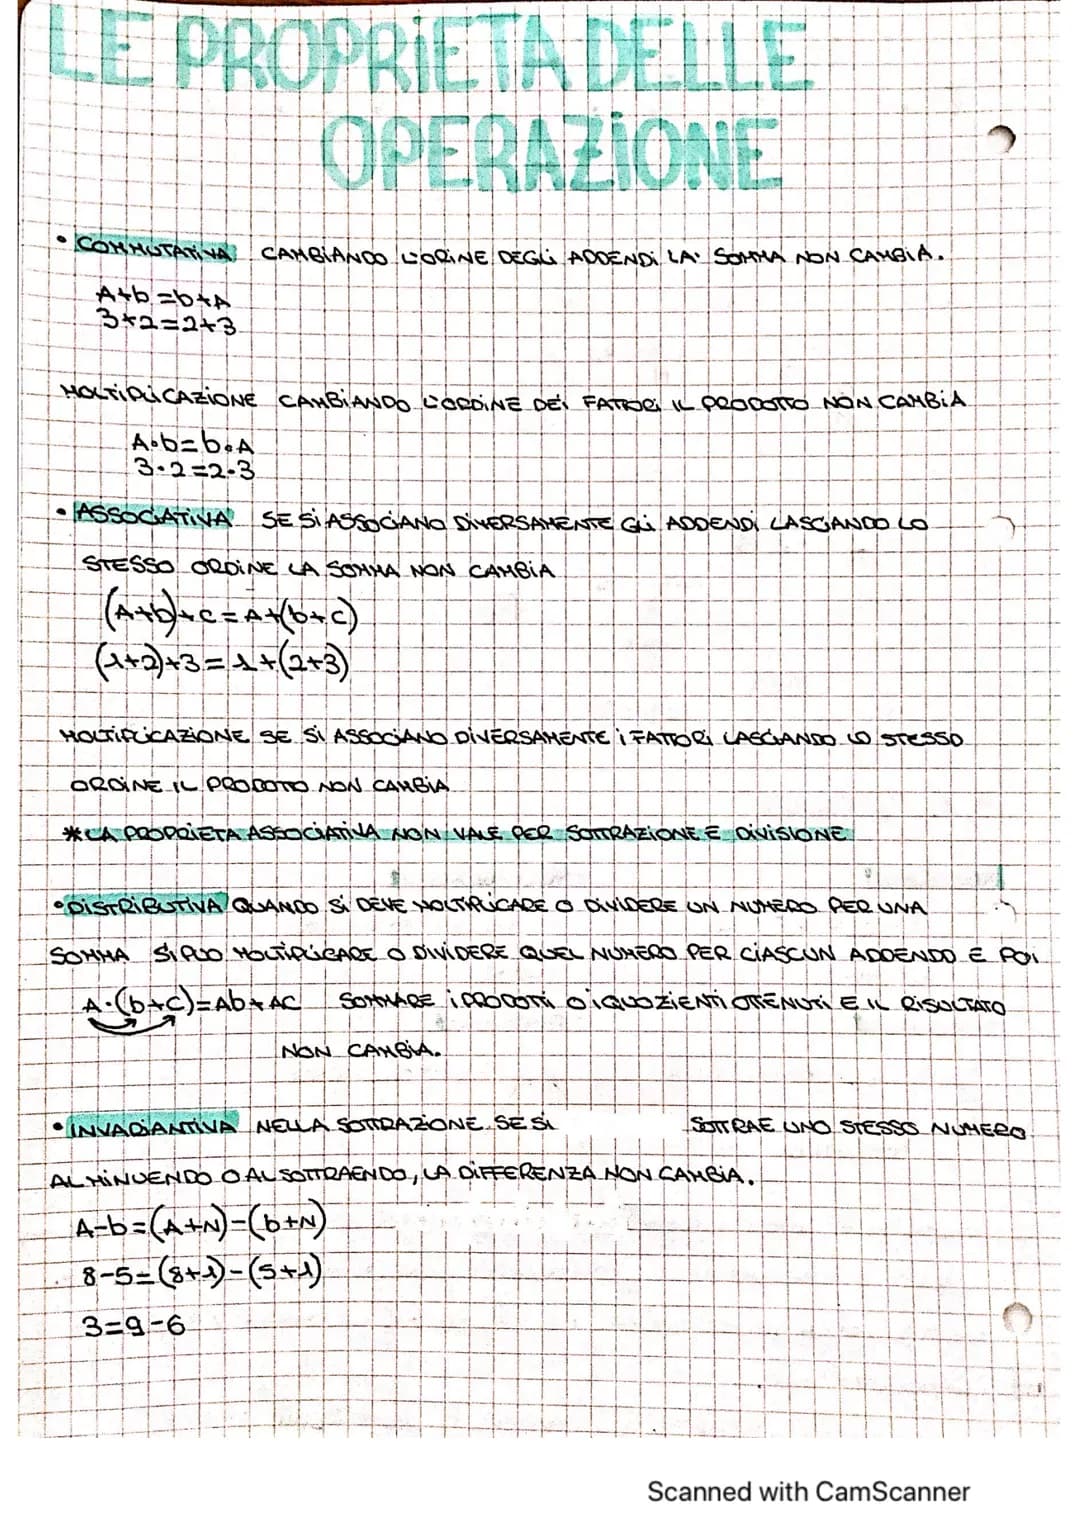 LE PROPRIETA DELLE
OPERAZIONE
• COMMUTATIVA CAMBIANDO L'ORINE DEGLI ADDENDI LA' SOMMA NON CAMBIA.
A+b=b+A
3+2=2+3
MOLTIPLICAZIONE CAMBIANDO L'ORDINE DEI FATTORI IL PRODOTTO NON CAMBIA
A•b=b•A
3•2=2•3
• ASSOCIATIVA SE SI ASSOCIANO DIVERSAMENTE GLI ADDENDI LASCIANDO LO
STESSO ORDINE LA SOMMA NON CAMBIA
(A+b)+c=A+(b+c)
(1+2)+3=1+(2+3)
MOLTIPLICAZIONE SE SI ASSOCIANO DIVERSAMENTE I FATTORI LASCIANDO LO STESSO
ORDINE IL PRODOTTO NON CAMBIA
*LA PROPRIETA ASSOCIATIVA NON VALE PER SOTTRAZIONE E DIVISIONE
• DISTRIBUTIVA QUANDO SI DEVE MOLTIPLICARE O DIVIDERE UN NUMERO PER UNA
SOMMA SI PUO MOLTIPLICARE O DIVIDERE QUEL NUMERO PER CIASCUN ADDENDO E POI
A•(b+c)=Ab+AC SOMMARE I PRODOTTI O I QUOZIENTI OTTENUTI E IL RISULTATO
NON CAMBIA.
• INVARIANTIVA NELLA SOTTRAZIONE SE SI SOTTRAE UNO STESSO NUMERO
AL MINUENDO O AL SOTTRAENDO, LA DIFFERENZA NON CAMBIA.
A-b=(A+N)-(b+N)
8-5=(8+1)-(5+1)
3=9-6
Scanned with CamScanner